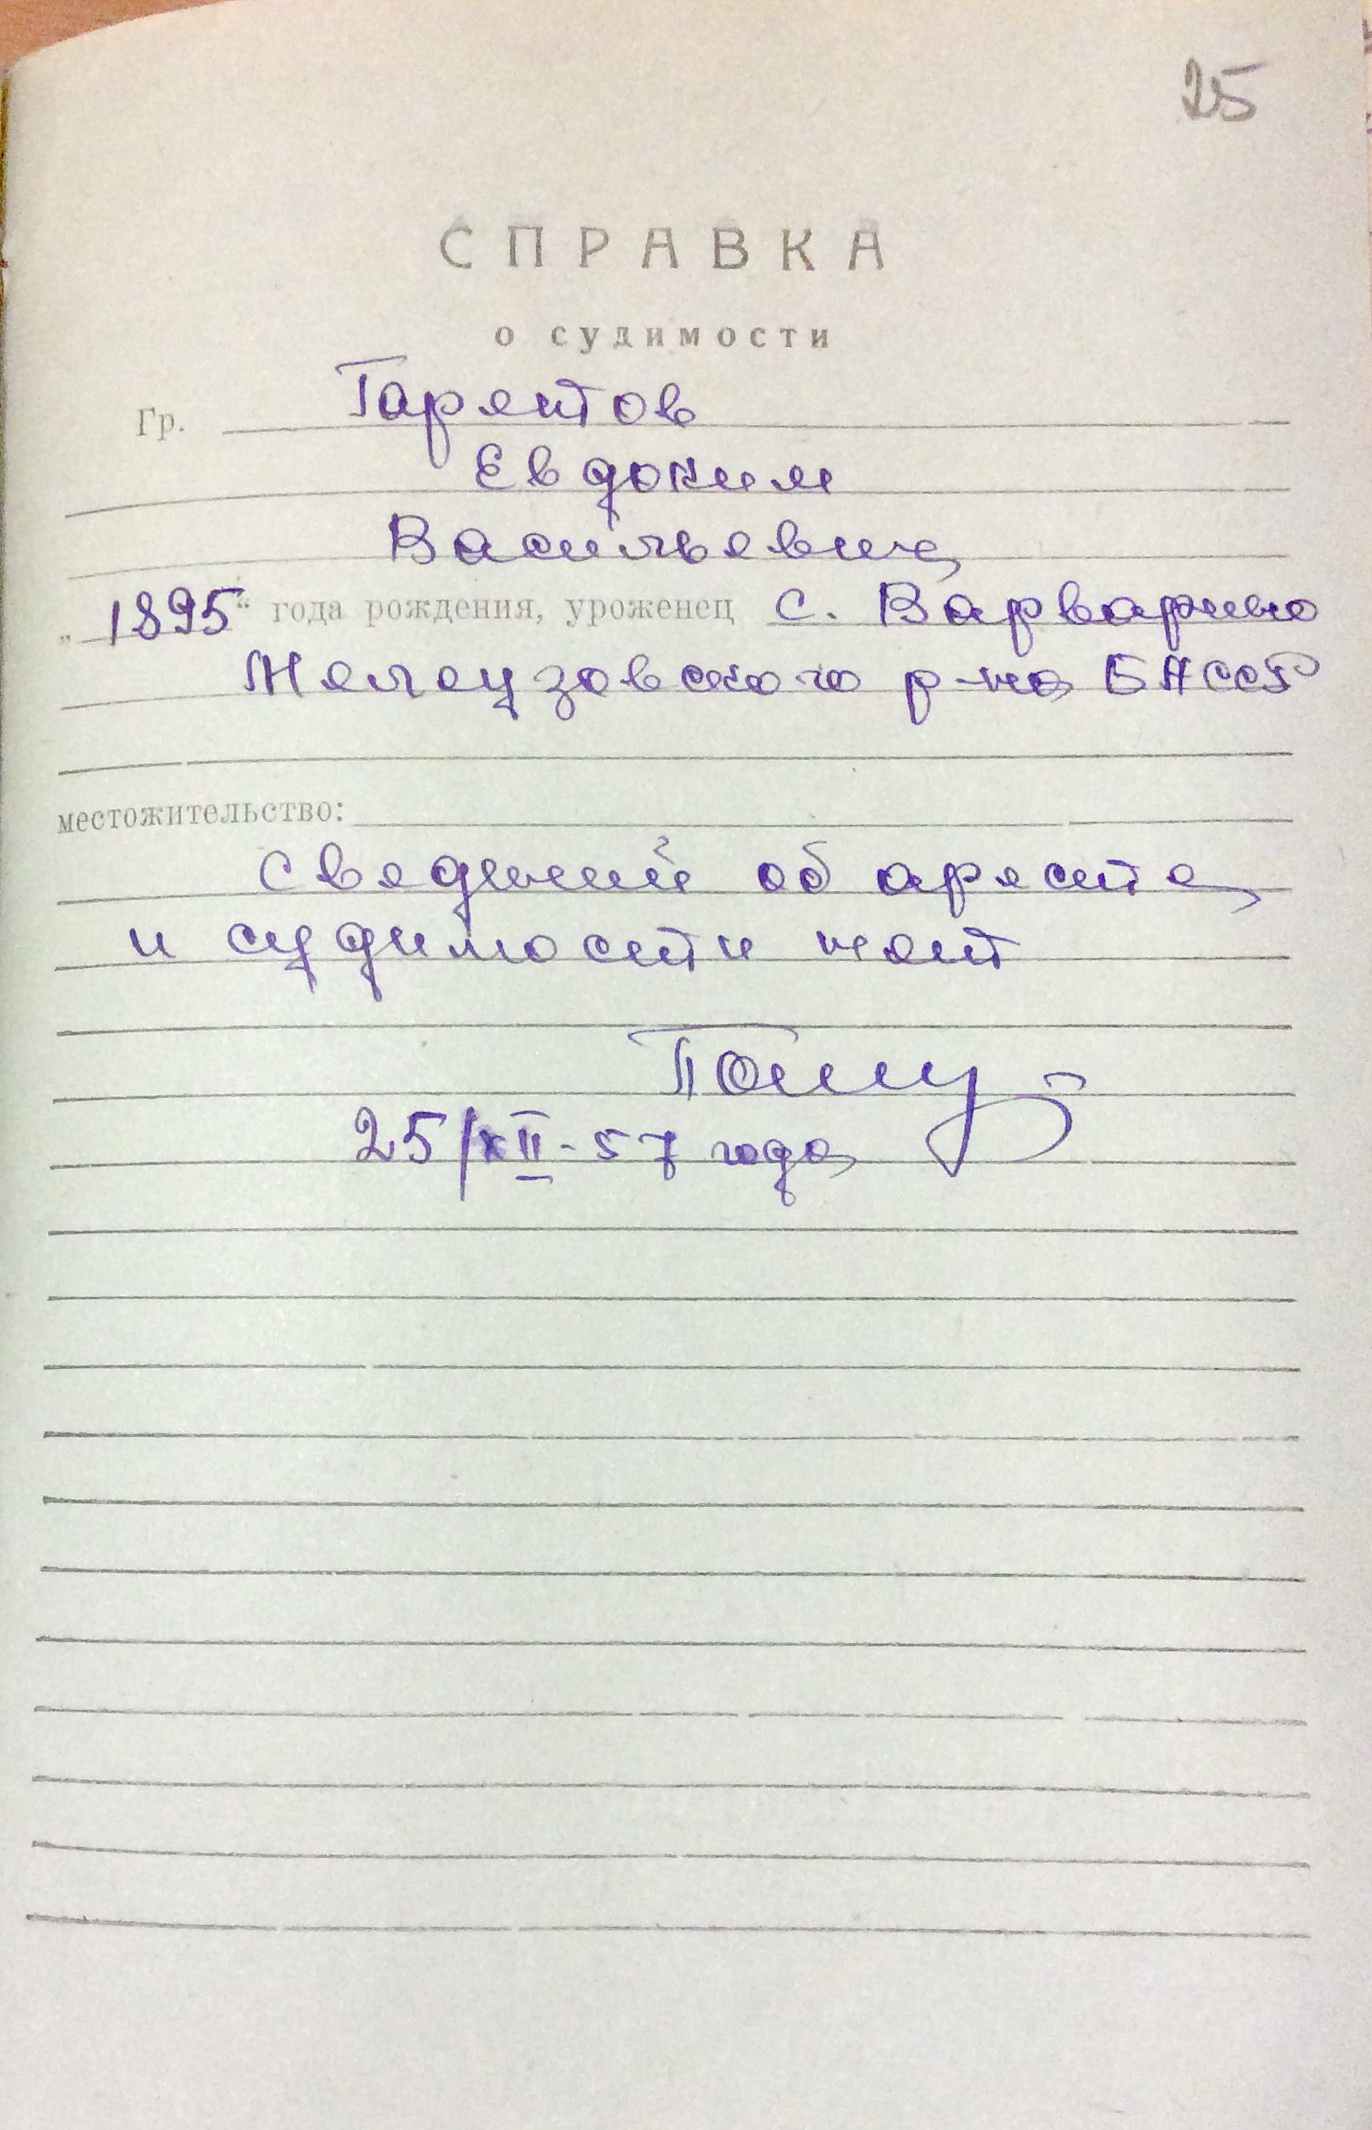 25
СПРАВКА
о судимости
Гр. Таретов
Евдоким
Васильевич
„1895“ года рождения, уроженец с. Варварино
Мелеузовского р-на БАССР
местожительство:
Сведений об аресте
и судимости нет
25/XII-57 года